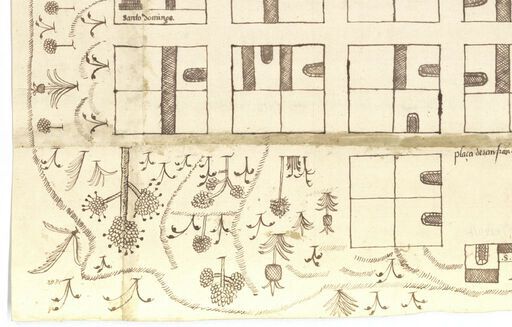 santo domingo.
plaça de san fran